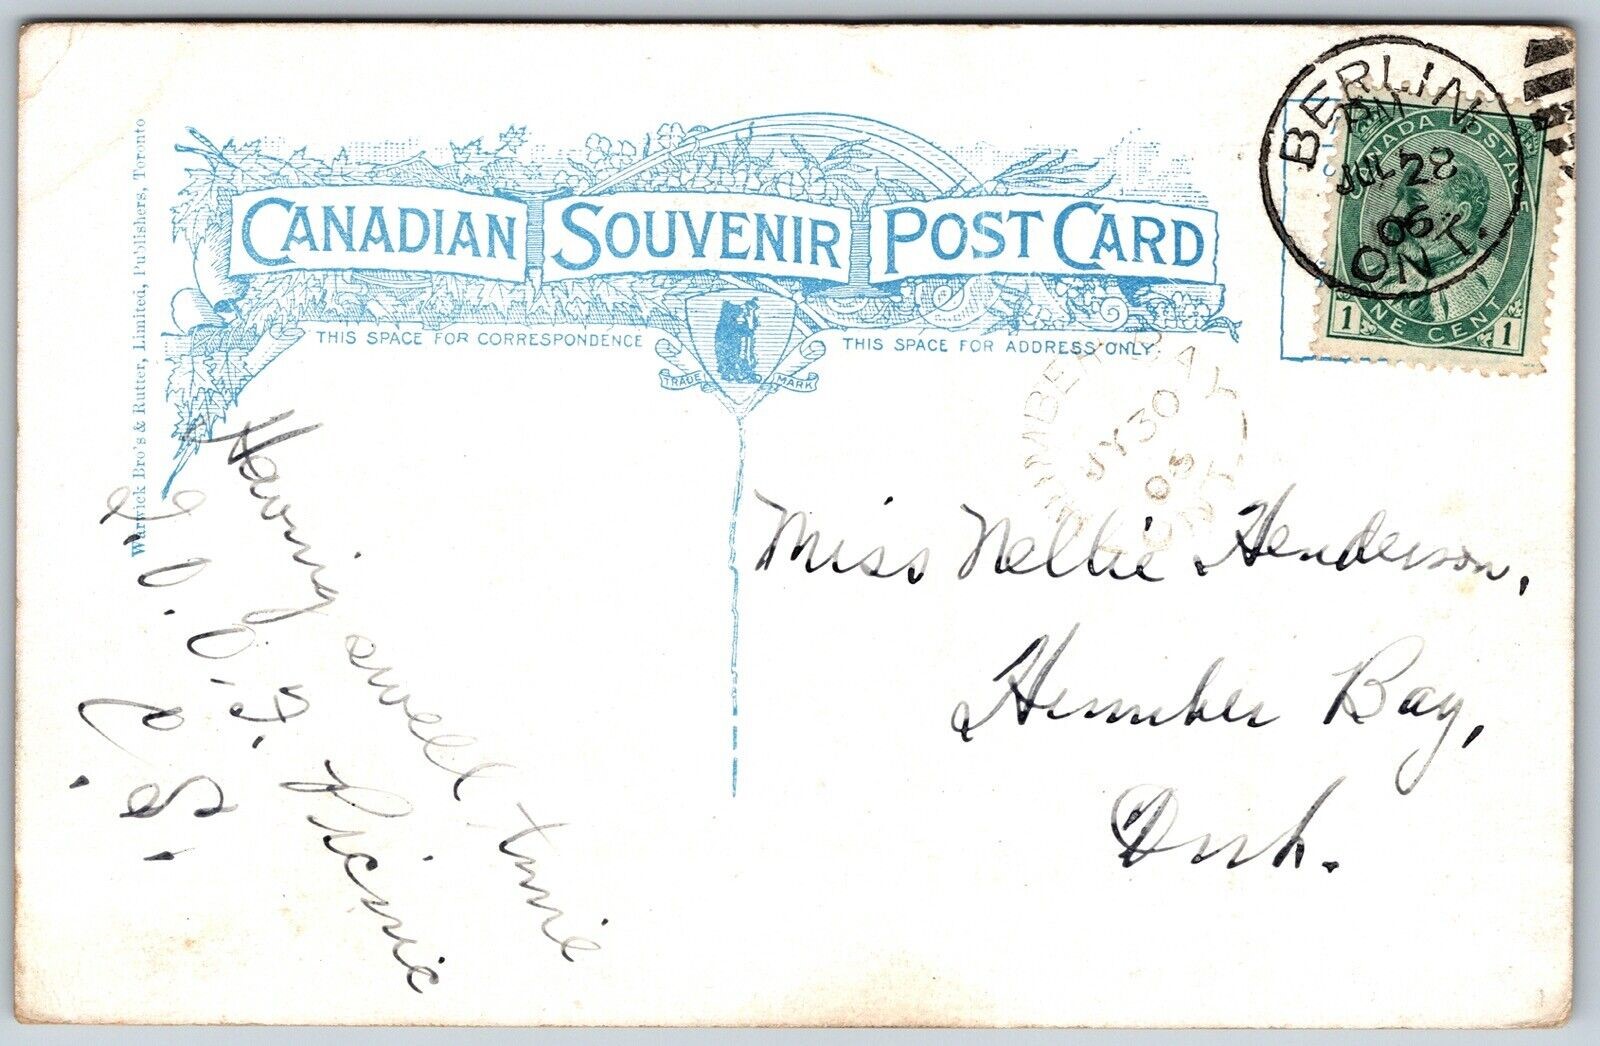 Warwick Bro's & Rutter, Limited, Publishers, Toronto
CANADIAN SOUVENIR POST CARD
THIS SPACE FOR CORRESPONDENCE
THIS SPACE FOR ADDRESS ONLY.
TRADE MARK
BERLIN
PM
JUL 28
06
ONT.
CANADA POSTAGE
1 ONE CENT 1
HUMBER BAY
JY 30
ONT
Having swell time
I.O.F. Picnic
Miss Nellie Henderson,
Humber Bay,
Ont.